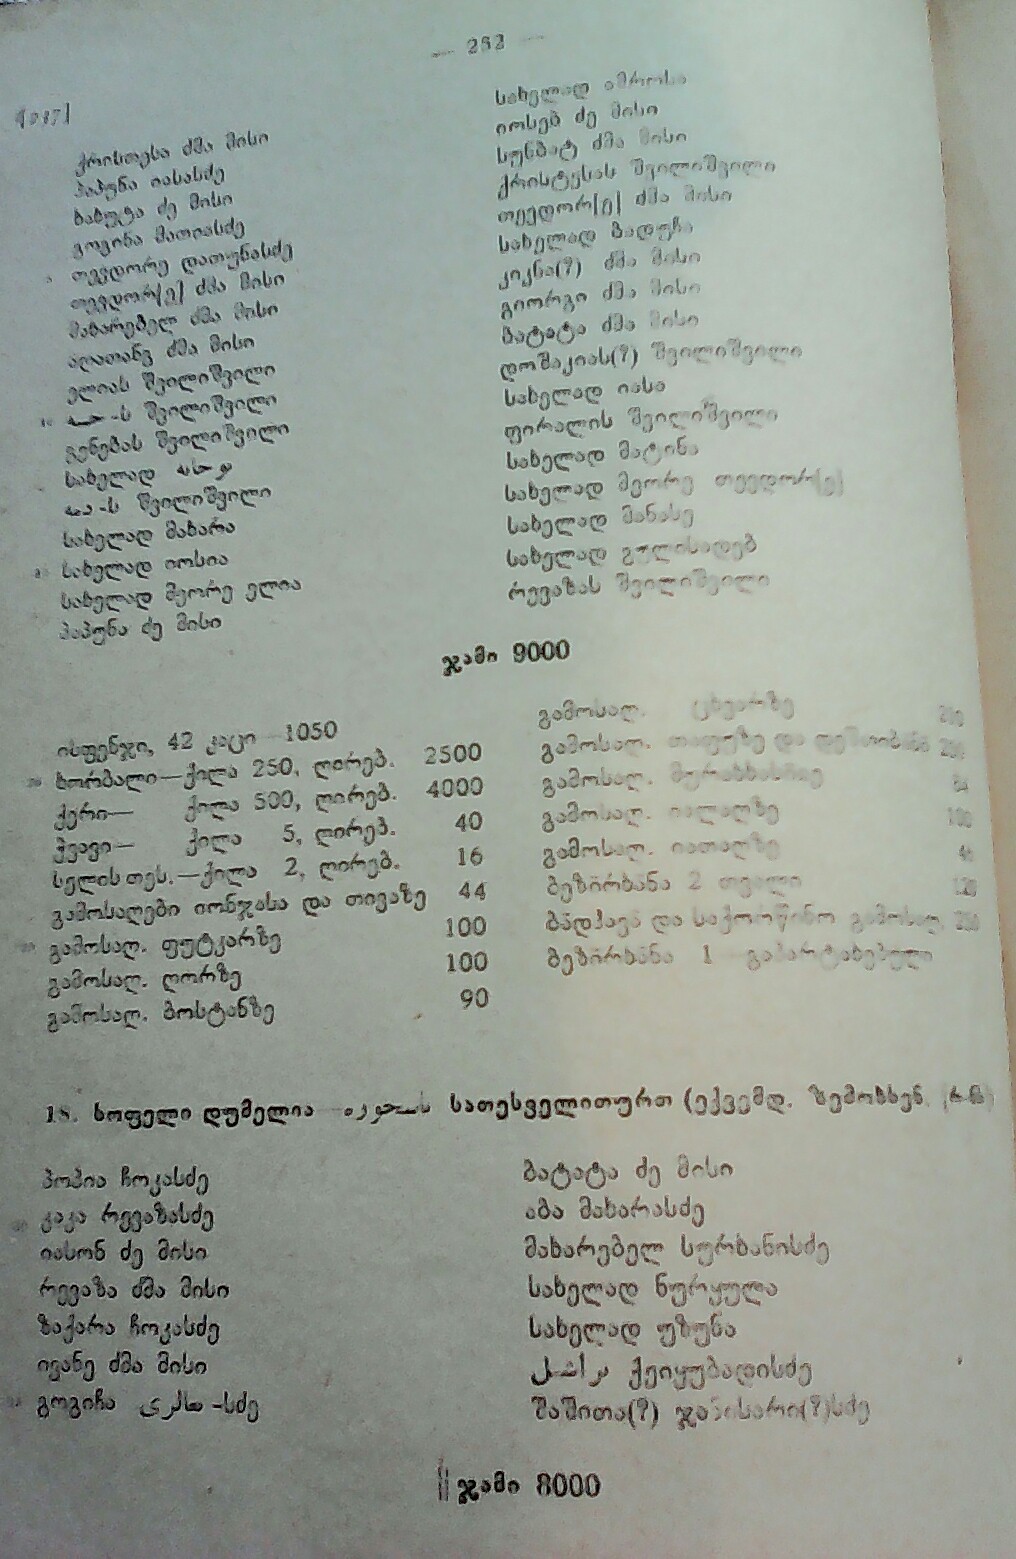 — 252 —
ქრისტესა ძმა მისი
პაპუნა იასასძე
ბაბუტა ძე მისი
გოგინა მათიასძე
თევდორე დათუნასძე
თევდორ[ე] ძმა მისი
მახარებელ ძმა მისი
აღათანგ ძმა მისი
ელიას შვილიშვილი
-ს შვილიშვილი
გენებას შვილიშვილი
სახელად
-ს შვილიშვილი
სახელად მახარა
სახელად იოსია
სახელად მეორე ელია
პაპუნა ძე მისი
სახელად ამროსა
იოსებ ძე მისი
სუნბატ ძმა მისი
ქრისტესას შვილიშვილი
თევდორ[ე] ძმა მისი
სახელად ბადუჩა
კიკნა(?) ძმა მისი
გიორგი ძმა მისი
ბატატა ძმა მისი
დოშაკიას(?) შვილიშვილი
სახელად იასა
ფირალის შვილიშვილი
სახელად მატინა
სახელად მეორე თევდორ[ე]
სახელად მანასე
სახელად გულისადებ
რევაზას შვილიშვილი
ჯამი 9000
ისფენჯი, 42 კაცი 1050
ხორბალი—ქილა 250, ღირებ. 2500
ქერი— ქილა 500, ღირებ. 4000
ჭვავი— ქილა 5, ღირებ. 40
სელის თეს.—ქილა 2, ღირებ. 16
გამოსაღები იონჯასა და თივაზე 44
გამოსაღ. ფუტკარზე 100
გამოსაღ. ღორზე 100
გამოსაღ. ბოსტანზე 90
გამოსაღ. ცხვარზე
გამოსაღ. თაფუზე და დეშთიბანზე
გამოსაღ.
გამოსაღ. იალაღზე 100
გამოსაღ. იათაღზე
ბეზირხანა 2 თვალი 120
ბადჰავა და საქორწინო გამოსაღ.
ბეზირხანა 1 გაპარტახებული
18. სოფელი დუმელია სათესველითურთ (ექვემდ. ზემოხსენ.
პოპია ჩოკასძე
კაკა რევაზასძე
იასონ ძე მისი
რევაზა ძმა მისი
ზაქარა ჩოკასძე
ივანე ძმა მისი
გოგიჩა -სძე
ბატატა ძე მისი
აბა მახარასძე
მახარებელ სურხანისძე
სახელად ნურყულა
სახელად უზუნა
ქეიყუბადისძე
შაშითა(?) ჯანისარი(?)სძე
ჯამი 8000